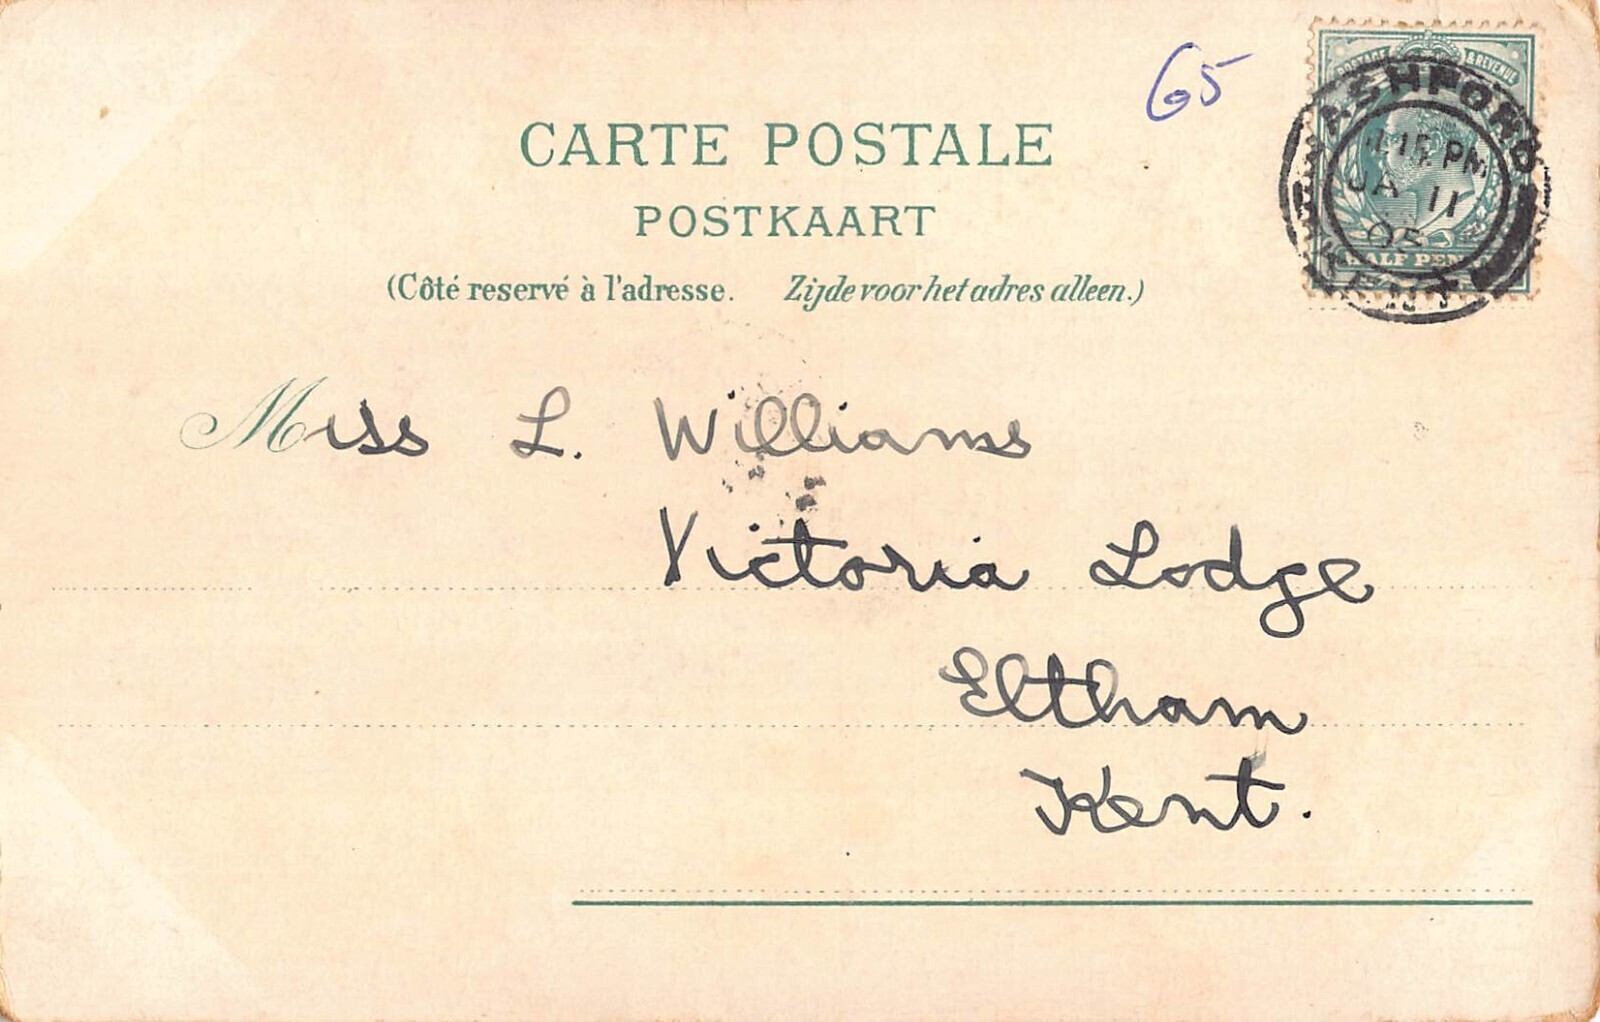 65
POSTAGE & REVENUE
ASHFORD
15 PM
JA 11
05
HALF PENNY
KENT
CARTE POSTALE
POSTKAART
(Côté reservé à l'adresse. Zijde voor het adres alleen.)
Miss L. Williams
Victoria Lodge
Eltham
Kent.